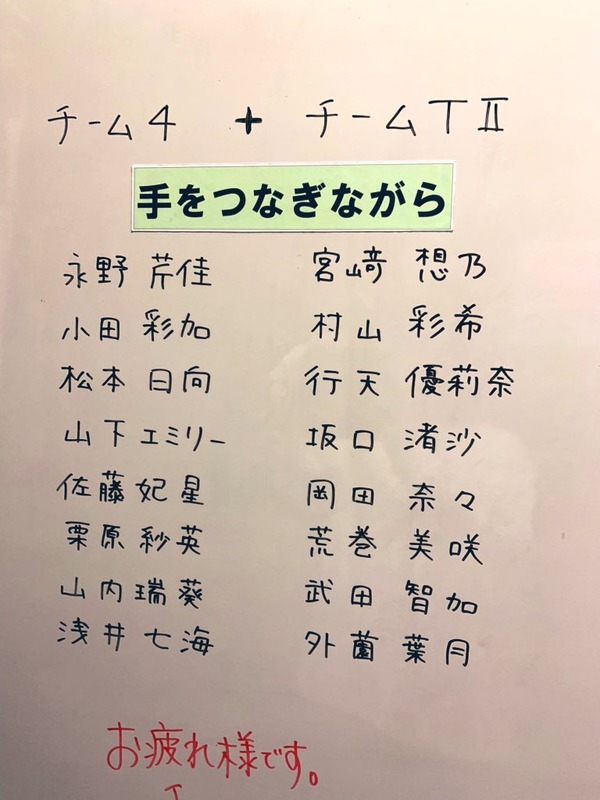 チーム4 + チームTⅡ
手をつなぎながら
永野 芹佳 宮﨑 想乃
小田 彩加 村山 彩希
松本 日向 行天 優莉奈
山下 エミリー 坂口 渚沙
佐藤 妃星 岡田 奈々
栗原 紗英 荒巻 美咲
山内 瑞葵 武田 智加
浅井 七海 外薗 葉月
お疲れ様です。